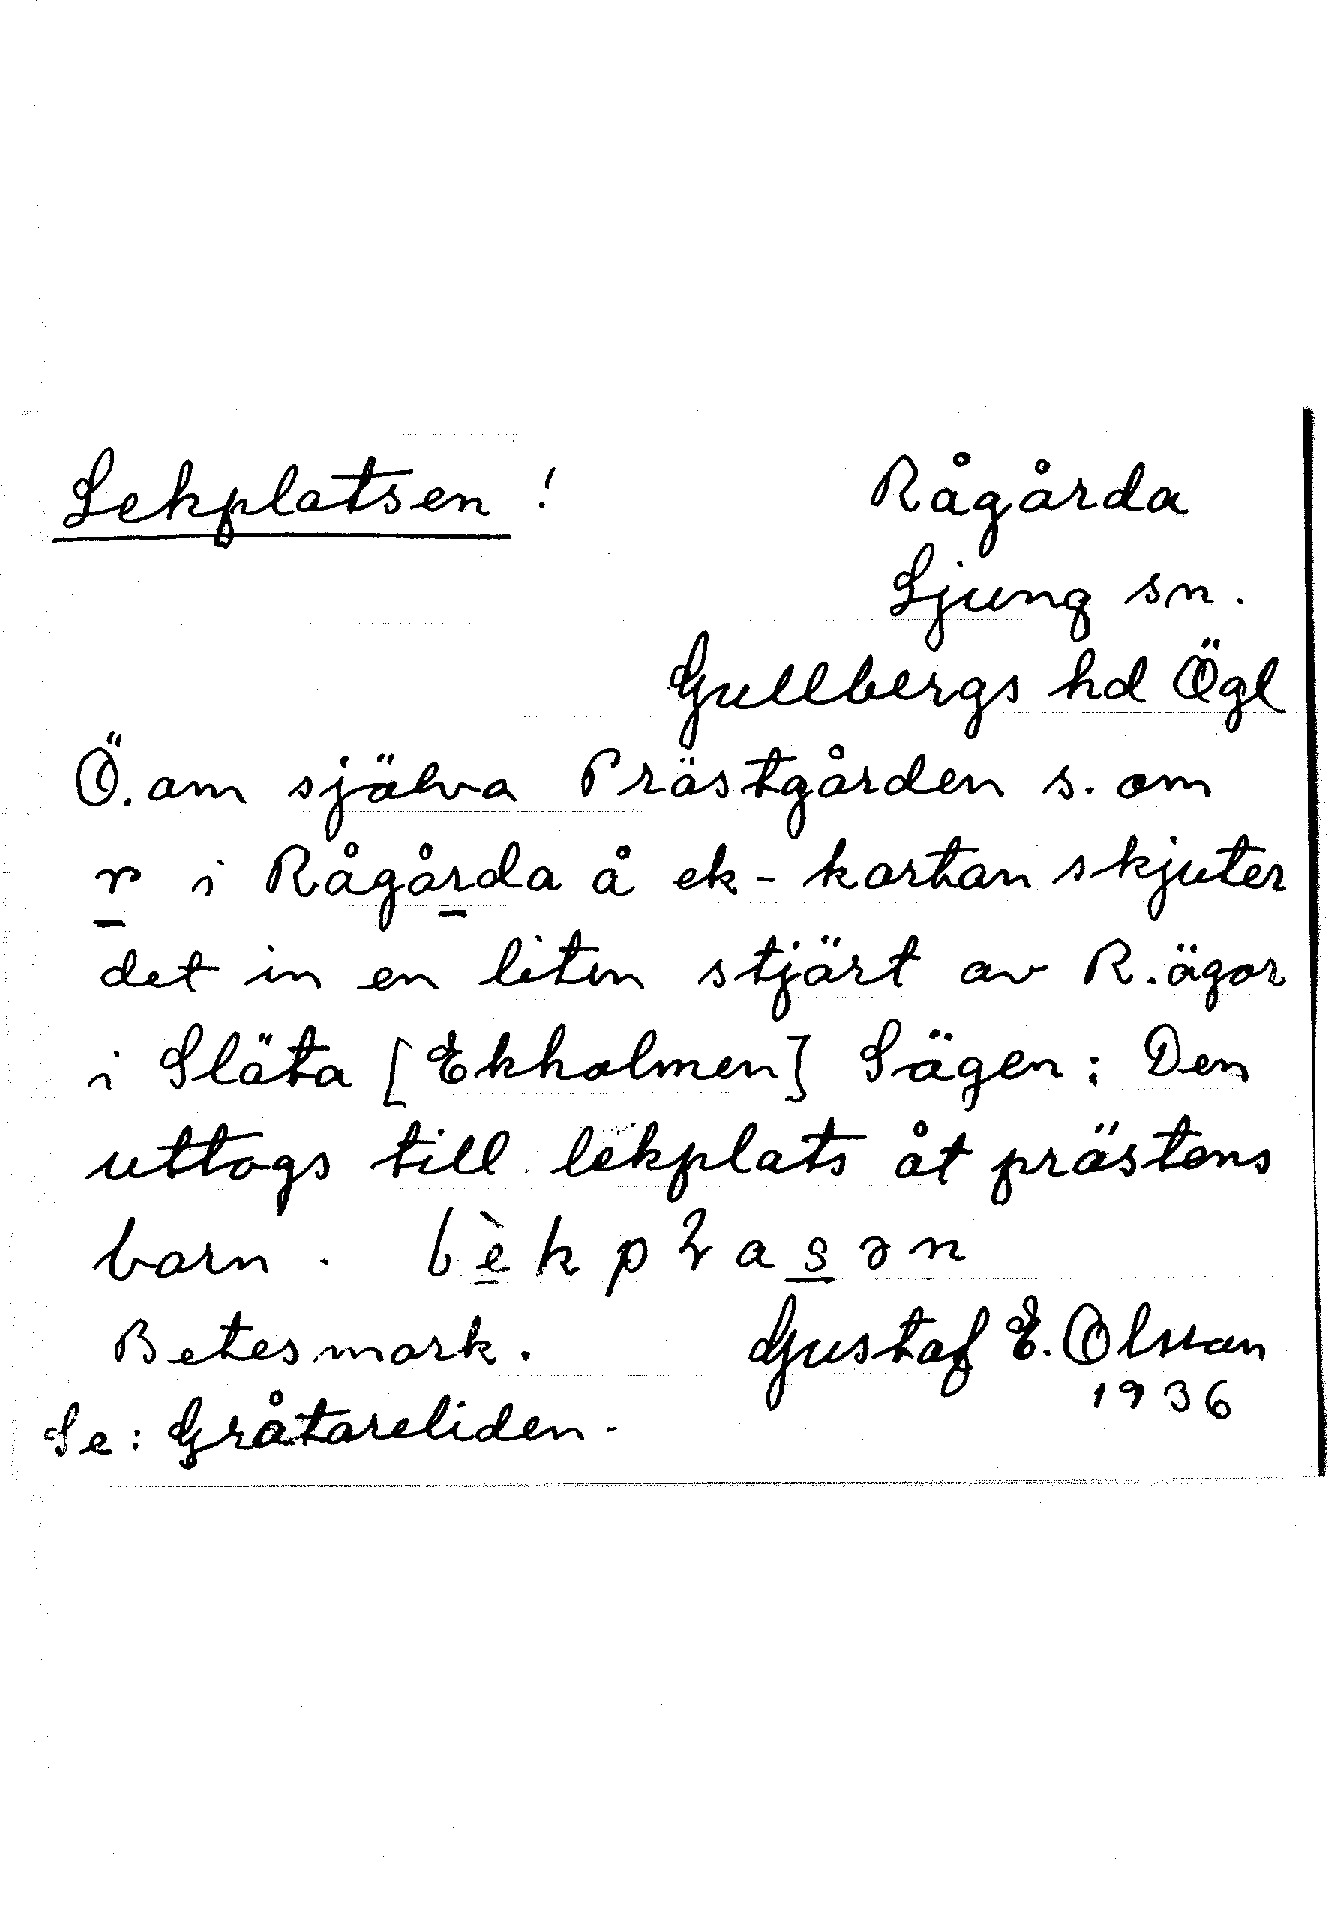 Lekplatsen ! Rågårda
Ljung sn.
Gullbergs hd Ögl
Ö. om själva Prästgården s. om
r i Rågårda å ek-kartan skjuter
det in en liten stjärt av R. ägor
i Släta [Ekholmen] Sägen: Den
uttogs till lekplats åt prästens
barn.
Betesmark. Gustaf E. Olsson
1936
Se: Gråtareliden.